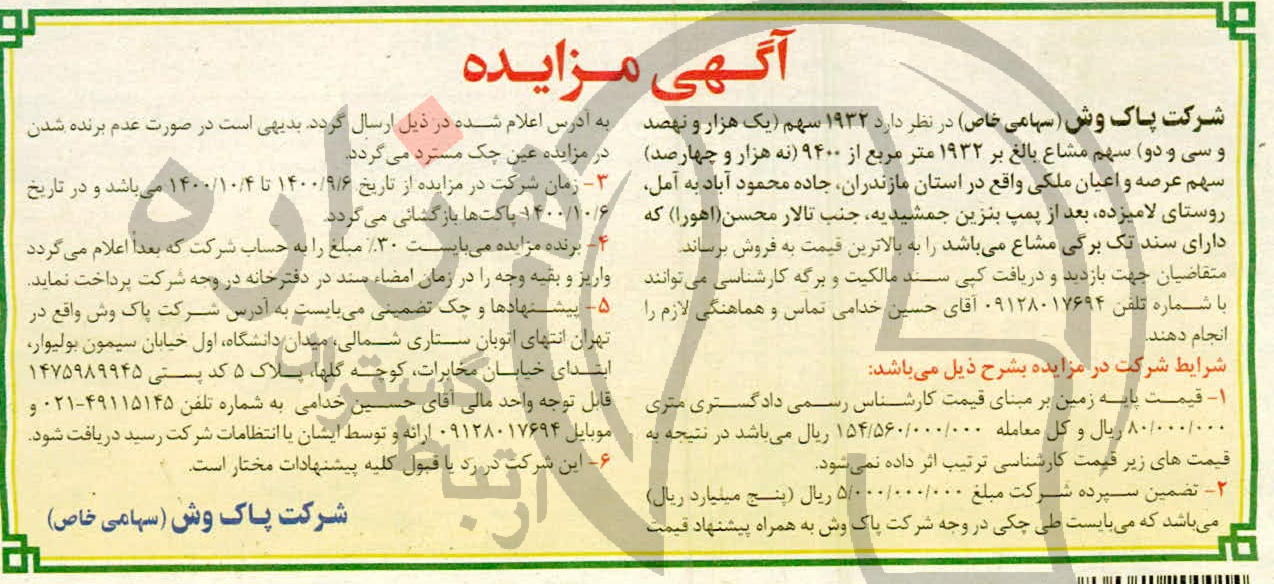 آگهی مزایده
شرکت پاک وش (سهامی خاص) در نظر دارد ۱۹۳۲ سهم (یک هزار و نهصد
و سی و دو) سهم مشاع بالغ بر ۱۹۳۲ متر مربع از ۹۴۰۰ (نه هزار و چهارصد)
سهم عرصه و اعیان ملکی واقع در استان مازندران، جاده محمود آباد به آمل،
روستای لامیزده، بعد از پمپ بنزین جمشیدیه، جنب تالار محسن(اهورا) که
دارای سند تک برگی مشاع می‌باشد را به بالاترین قیمت به فروش برساند.
متقاضیان جهت بازدید و دریافت کپی سند مالکیت و برگه کارشناسی می‌توانند
با شماره تلفن ۰۹۱۲۸۰۱۷۶۹۴ آقای حسین خدامی تماس و هماهنگی لازم را
انجام دهند.
شرایط شرکت در مزایده بشرح ذیل می‌باشد:
۱- قیمت پایه زمین بر مبنای قیمت کارشناس رسمی دادگستری متری
۸۰/۰۰۰/۰۰۰ ریال و کل معامله ۱۵۴/۵۶۰/۰۰۰/۰۰۰ ریال می‌باشد در نتیجه به
قیمت های زیر قیمت کارشناسی ترتیب اثر داده نمی‌شود.
۲- تضمین سپرده شرکت مبلغ ۵/۰۰۰/۰۰۰/۰۰۰ ریال (پنج میلیارد ریال)
می‌باشد که می‌بایست طی چکی در وجه شرکت پاک وش به همراه پیشنهاد قیمت
به آدرس اعلام شده در ذیل ارسال گردد. بدیهی است در صورت عدم برنده شدن
در مزایده عین چک مسترد می‌گردد.
۳- زمان شرکت در مزایده از تاریخ ۱۴۰۰/۹/۶ تا ۱۴۰۰/۱۰/۴ می‌باشد و در تاریخ
۱۴۰۰/۱۰/۶ پاکت‌ها بازگشائی می‌گردد.
۴- برنده مزایده می‌بایست ۳۰٪ مبلغ را به حساب شرکت که بعداً اعلام می‌گردد
واریز و بقیه وجه را در زمان امضاء سند در دفترخانه در وجه شرکت پرداخت نماید.
۵- پیشنهادها و چک تضمینی می‌بایست به آدرس شرکت پاک وش واقع در
تهران انتهای اتوبان ستاری شمالی، میدان دانشگاه، اول خیابان سیمون بولیوار،
ابتدای خیابان مخابرات، کوچه گلها، پلاک ۵ کد پستی ۱۴۷۵۹۸۹۹۴۵
قابل توجه واحد مالی آقای حسین خدامی به شماره تلفن ۴۹۱۱۵۱۴۵-۰۲۱ و
موبایل ۰۹۱۲۸۰۱۷۶۹۴ ارائه و توسط ایشان یا انتظامات شرکت رسید دریافت شود.
۶- این شرکت در رد یا قبول کلیه پیشنهادات مختار است.
شرکت پاک وش (سهامی خاص)
هزاره
گستران
ارتباط